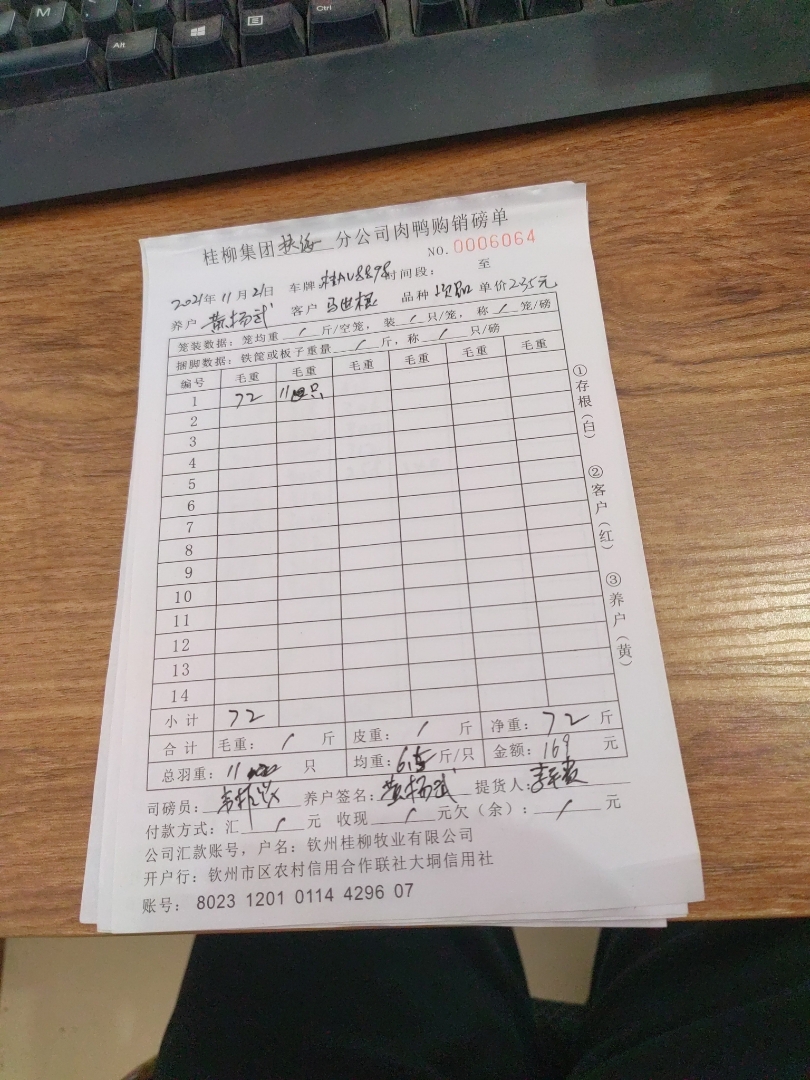 M
Alt
Ctrl
桂柳集团 分公司肉鸭购销磅单
NO.0006064
2021年11月21日 车牌 桂AU8898 时间段： 至
养户 黄杨武 客户 马世 品种 次品 单价2.35元
笼装数据：笼均重 / 斤/空笼，装 / 只/笼，称 / 笼/磅
捆脚数据：铁筐或板子重量 / 斤，称 / 只/磅
编号 毛重 毛重 毛重 毛重 毛重 毛重
1 72 11只
2
3
4
5
6
7
8
9
10
11
12
13
14
小计 72
合计 毛重： / 斤 皮重： / 斤 净重：72 斤
总羽重：11 只 均重： 斤/只 金额：169 元
司磅员： 养户签名：黄杨武 提货人：
付款方式：汇 / 元 收现 / 元欠（余）： / 元
公司汇款账号，户名：钦州桂柳牧业有限公司
开户行：钦州市区农村信用合作联社大垌信用社
账号： 8023 1201 0114 4296 07
①存根（白）
②客户（红）
③养户（黄）